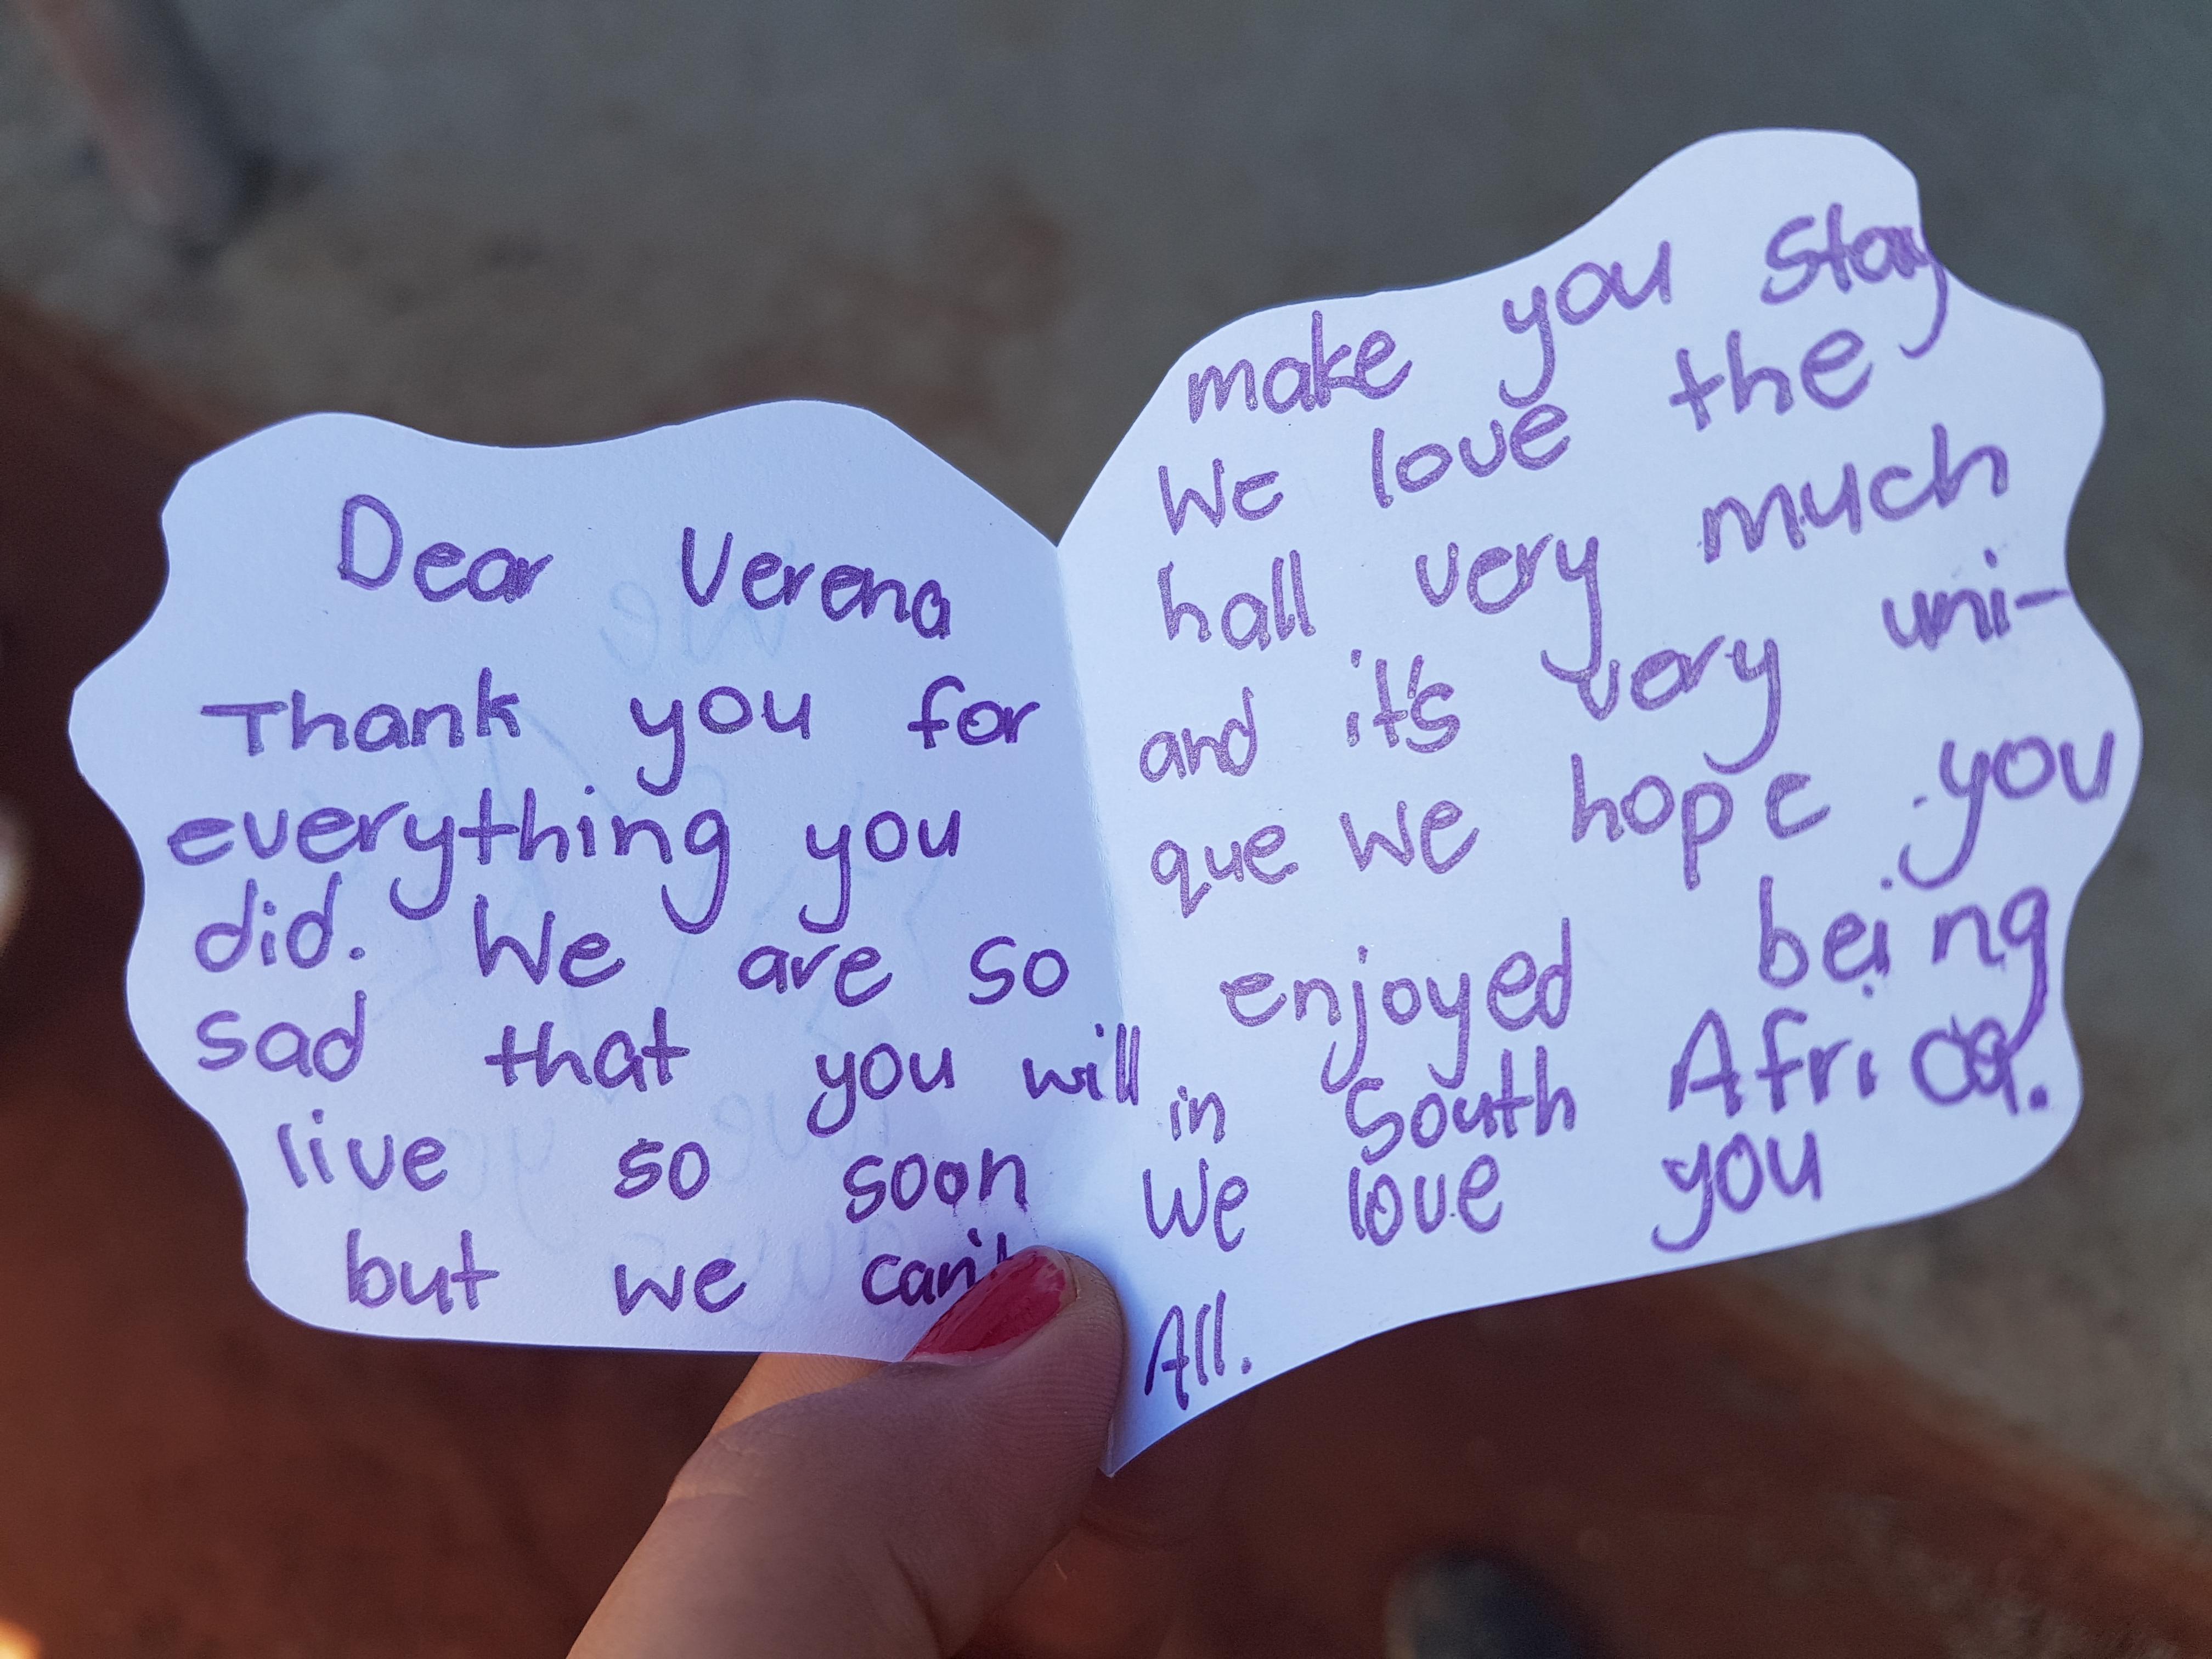 Dear Verena
Thank you for
everything you
did. We are so
sad that you will
live so soon
but we can't
make you stay
We love the
hall very much
and it's very uni-
que we hope you
enjoyed being
in South Africa.
We love you
All.